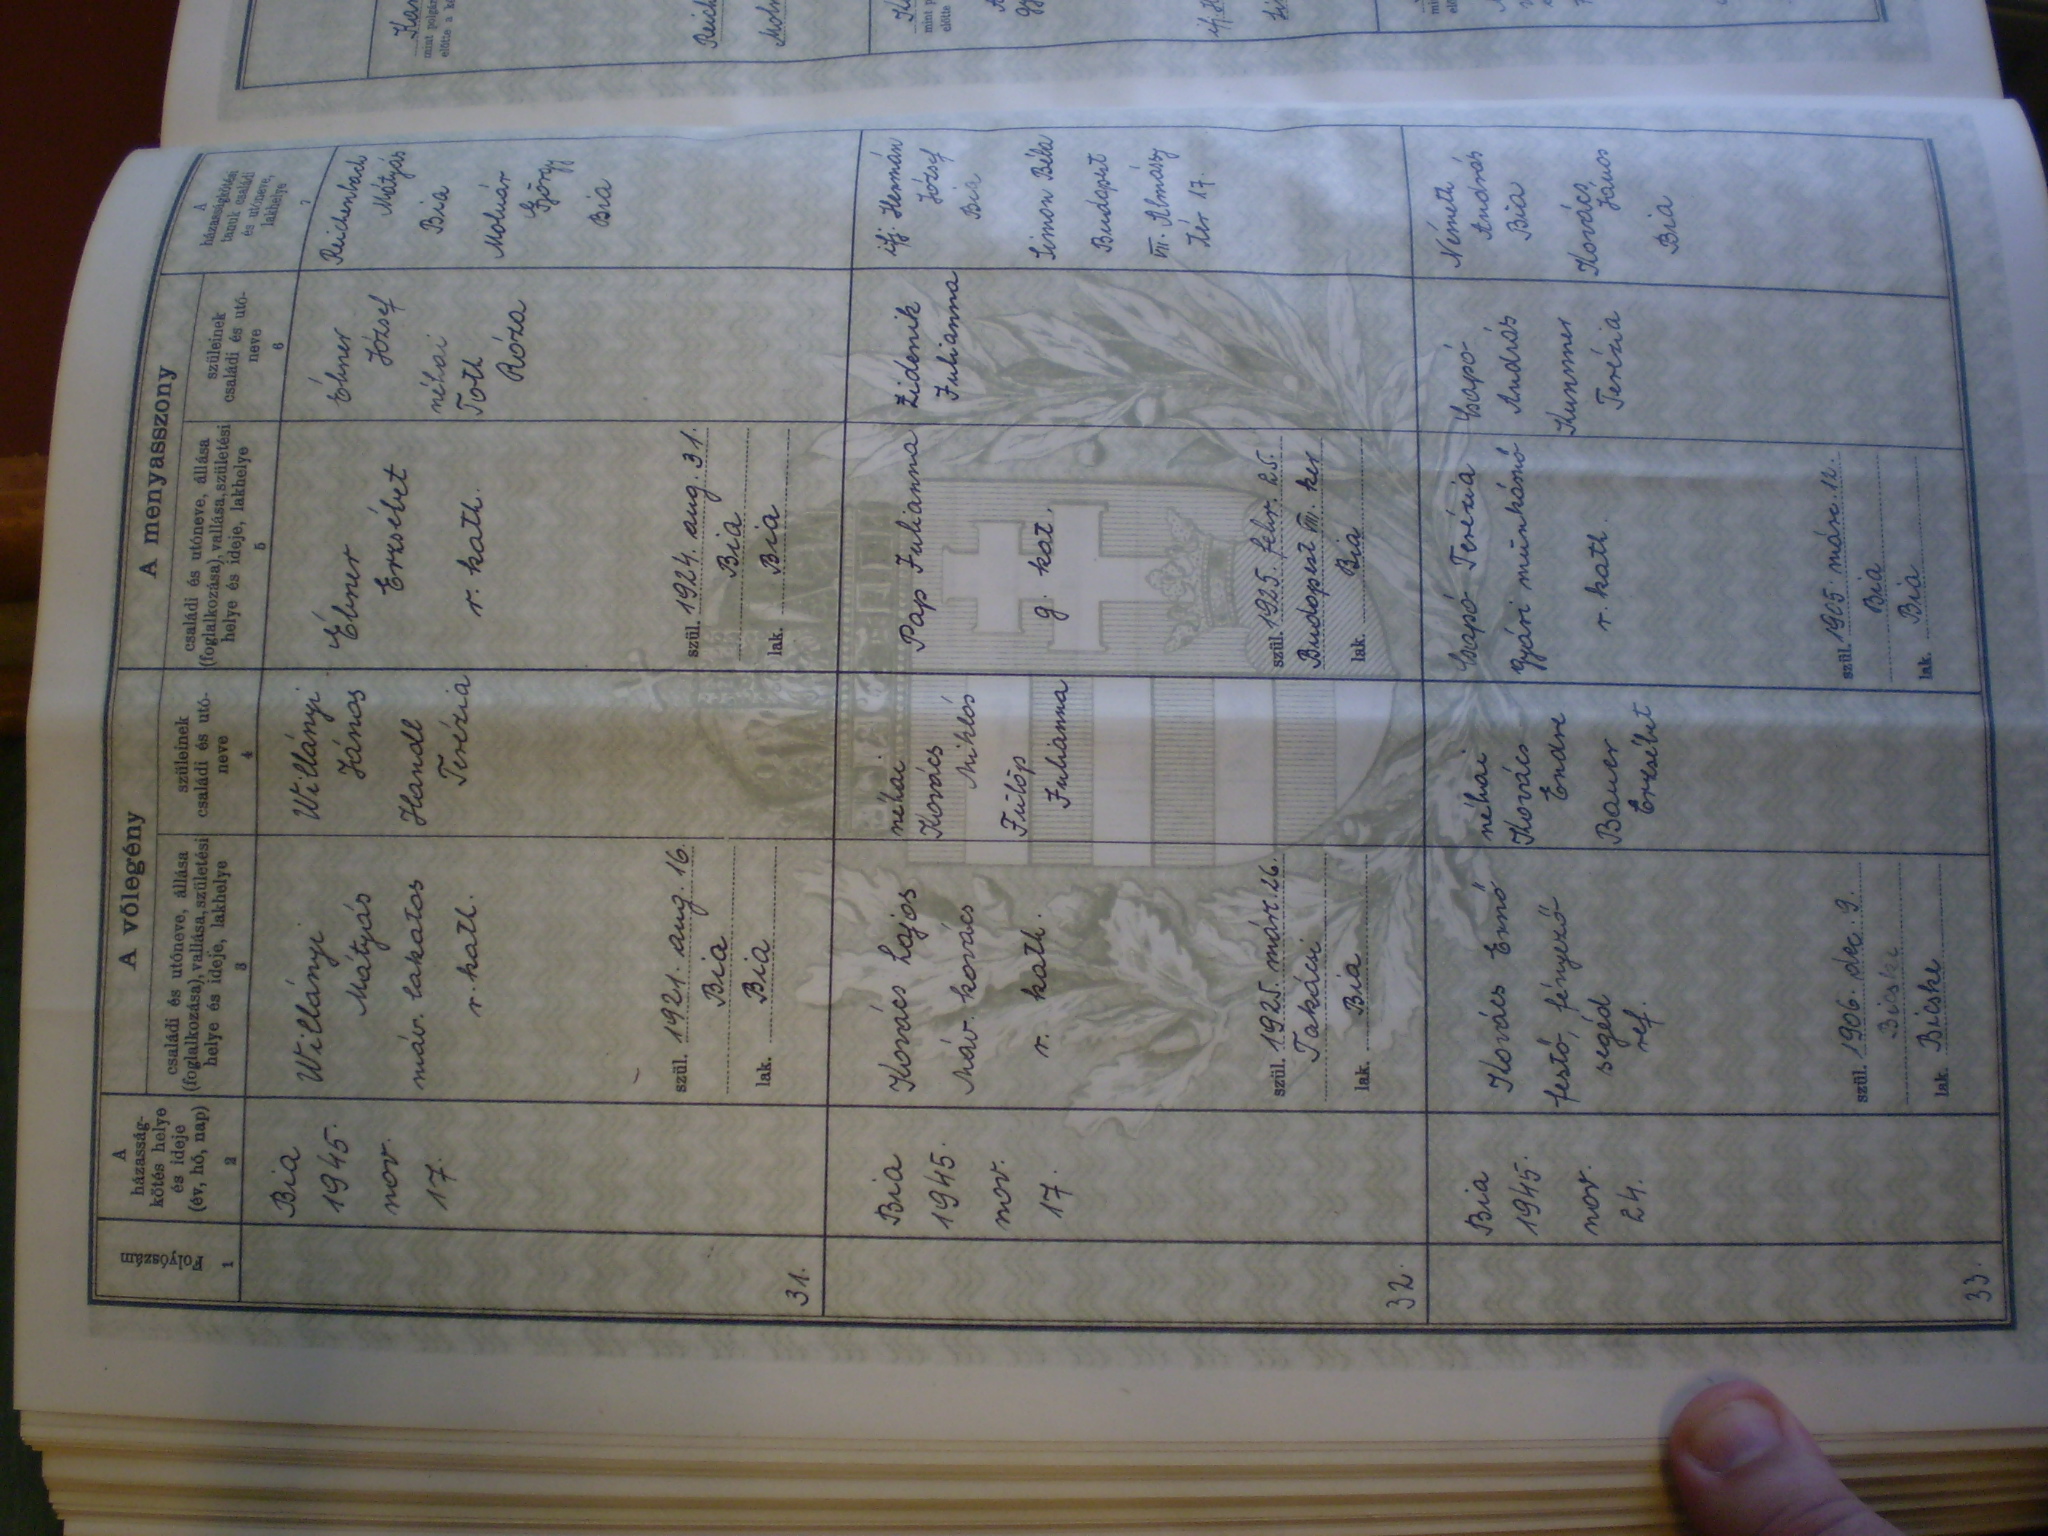 Folyószám
1
A
házasság-
kötés helye
és ideje
(év, hó, nap)
2
A vőlegény
családi és utóneve, állása
(foglalkozása), vallása, születési
helye és ideje, lakhelye
3
szüleinek
családi és utó-
neve
4
A menyasszony
családi és utóneve, állása
(foglalkozása), vallása, születési
helye és ideje, lakhelye
5
szüleinek
családi és utó-
neve
6
A
házasságkötési
tanuk családi
és utóneve,
lakhelye
7
31.
Bia
1945.
nov.
17.
Willányi
Mátyás
máv. lakatos
r. kath.
szül. 1921. aug. 16.
Bia
lak. Bia
Willányi
János
Handl
Terézia
Ébner
Erzsébet
r. kath.
szül. 1924. aug. 31.
Bia
lak. Bia
Ébner
József
néhai
Toth
Róza
Reichenbach
Mátyás
Bia
Molnár
György
Bia
32.
Bia
1945.
nov.
17.
Kovács Lajos
Máv. kovács
r. kath.
szül. 1925. márc. 26.
Takácsi
lak. Bia
néhai
Kovács
Miklós
Fülöp
Julianna
Pap Julianna
g. kat.
szül. 1925. febr. 25.
Budapest VII. ker
lak Bia
Zidenik
Julianna
ifj. Hermán
József
Bia
Simon Béla
Budapest
VII. Almássy
tér 17.
33.
Bia
1945.
nov.
24.
Kovács Ernő
festő, fényező
segéd
ref.
szül. 1906. dec. 9.
Bicske
lak. Bicske
néhai
Kovács
Endre
Bauer
Erzsébet
Csapó Terézia
gyári munkásnő
r. kath.
szül. 1905. márc. 12.
Bia
lak. Bia
Csapó
András
Kummer
Terézia
Németh
András
Bia
Kovács
János
Bia
mint polgári
előtte a